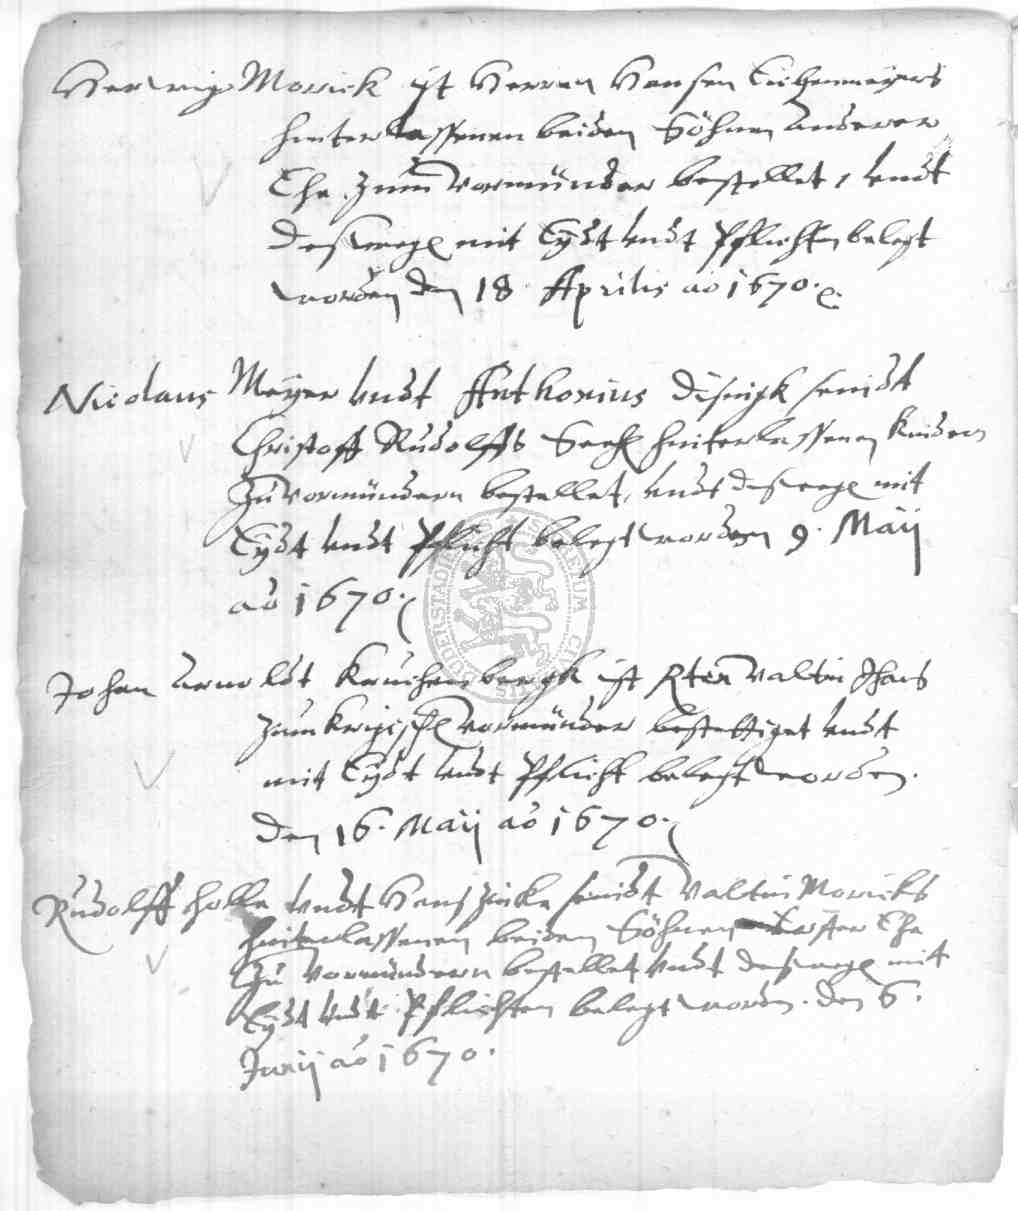 Herwig Morick ist Herren Hansen
hinterlassenen beiden Söhnen anderer
Ehe zum Vormünder bestellet, undt
deßwegen mit Eydt undt Pflichten belegt
worden den 18 Aprilis ao 1670.
Nicolaus Meyer undt Anthonius seindt
Christoff Rudolffs Seel hinterlassenen Kindern
zu Vormündern bestellet, undt deßwegen mit
Eydt undt Pflicht belegt worden 9. Maij
ao 1670.
Johan Arnoldt ist Valtin
zum Vormünder bestettiget undt
mit Eydt undt Pflicht belegt worden.
den 16. Maij ao 1670.
Rudolff Holle undt Hans Zinke seindt Valtin Moricks
hinterlassenen beiden Söhnen Erster Ehe
zu Vormündern bestellet undt deßwegen mit
Eydt undt Pflichten belegt worden. den 6.
Junij ao 1670.